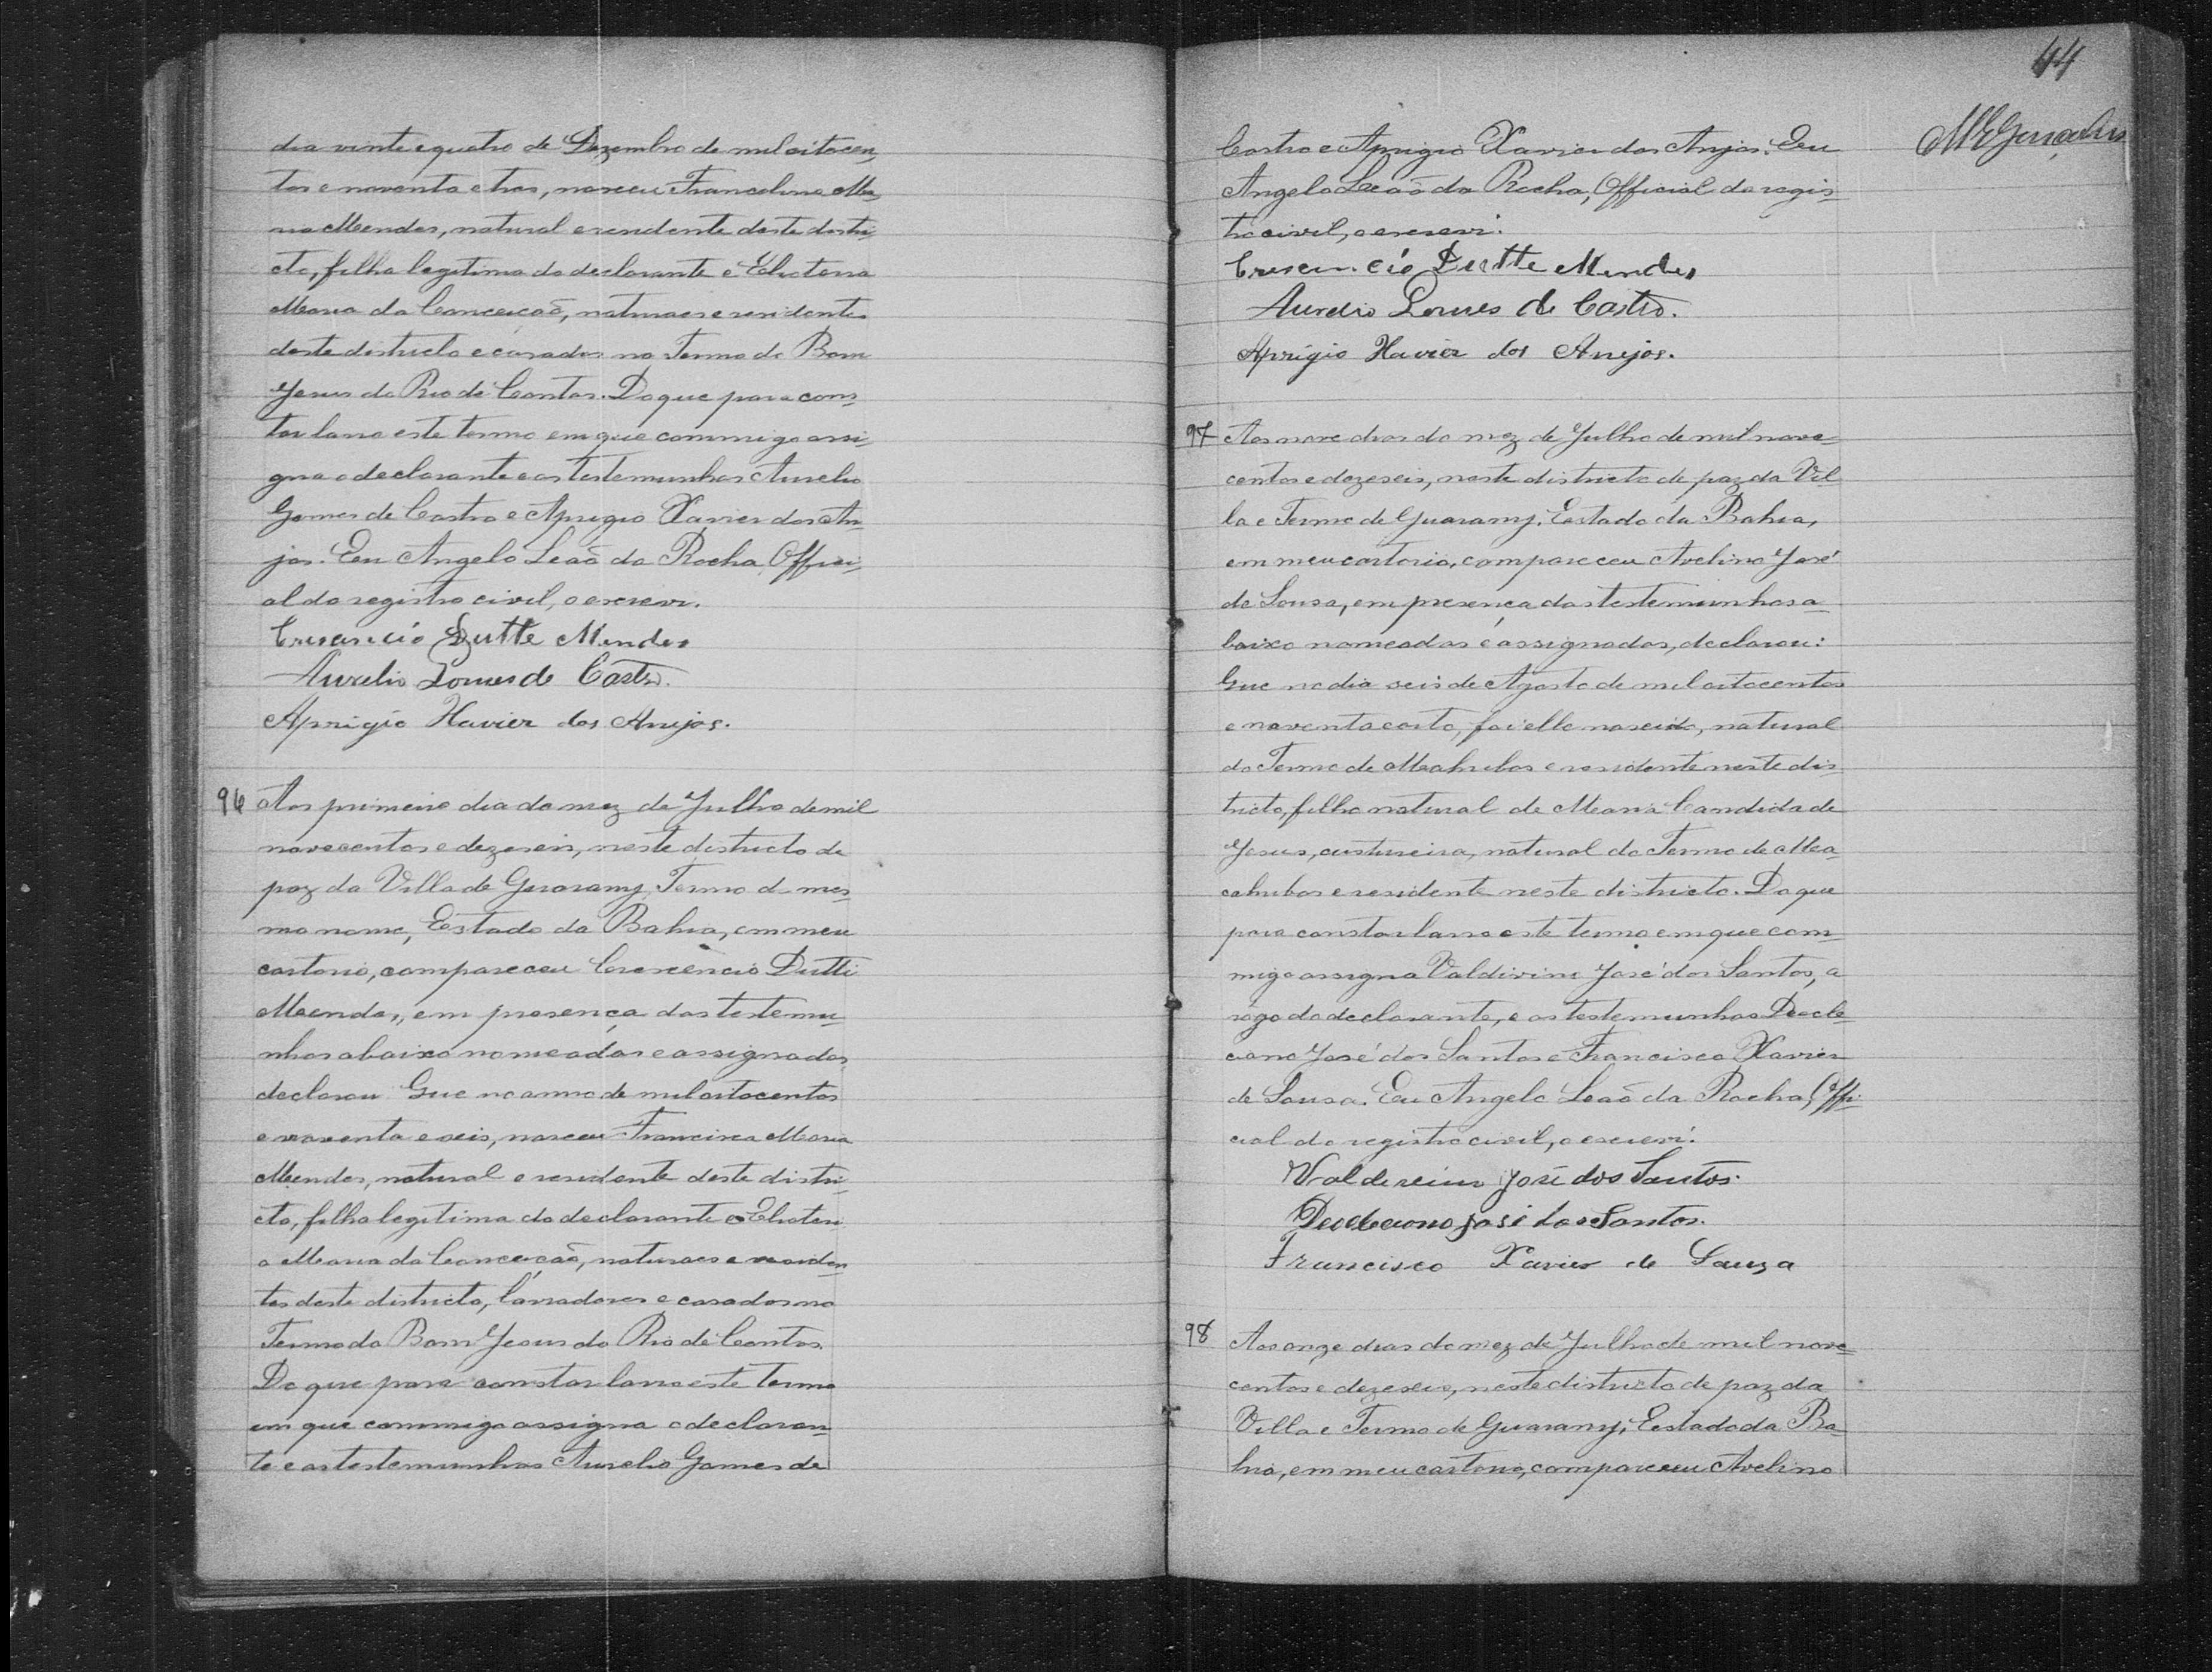 dia vinte e quatro de Dezembro de mil oitocen-
tos e noventa e tres, nasceu Francelina Ma-
ria Mendes, natural e residente deste distri-
cto, filha legitima do declarante e Elioteria
Maria da Conceição, naturaes e residentes
deste districto e casados no Termo do Bom
Jesus do Rio de Contas. Do que para cons-
tar lavro este termo em que commigo assi-
gna o declarante e as testemunhas Aurelio
Gomes de Castro e Aprigio Xavier dos An-
jos. Eu Angelo Leaõ da Rocha, Offici-
al do registro civil, o escrevi.
Crescencio Dutte Mendes
Aurelio Gomes de Castro.
Aprigio Xavier dos Anejos.
96 Aos primeiro dia do mez de Julho de mil
novecentos e dezeseis, neste districto de
paz da Villa de Guarany, Termo do mes-
mo nome, Estado da Bahia, em meu
cartorio, compareceu Crescencio Dutti
Mendes, em presença das testemu-
nhas abaixo nomeadas e assignadas,
declarou Que no anno de mil oitocentos
e noventa e seis, nasceu Francisca Maria
Mendes, natural e residente deste distri-
cto, filha legitima do declarante e Elioteri-
a Maria da Conceição, naturaes e residen-
tes deste districto, lavradores e casados no
Termo do Bom Jesus do Rio de Contas.
Do que para constar lavro este termo
em que commigo assigna o declaran-
te e as testemunhas Aurelio Gomes de
44
Castro e Aprigio Xavier dos Anjos. Eu
Angelo Leaõ da Rocha, Official do regis-
tro civil, o escrevi.
Crescencio Dutte Mendes
Aurelio Gomes de Castro.
Aprigio Xavier dos Anejos.
97 Aos nove dias do mez de Julho de mil nove-
centos e dezeseis, neste districto de paz da Vil-
la e Termo de Guarany, Estado da Bahia,
em meu cartorio, compareceu Avelino José
de Sousa, em presença das testemunhas a-
baixo nomeadas e assignadas, declarou:
Que no dia seis de Agosto de mil oitocentos
e noventa e oito, foi elle nascido, natural
do Termo de Macahubas e residente neste dis-
tricto, filho natural de Maria Candida de
Jesus, custureira, natural do Termo de Ma-
cahubas e residente neste districto. Do que
para constar lavro este termo em que com-
migo assigna Valdivino José dos Santos, a
rogo do declarante, e as testemunhas Deocle-
ciano José dos Santos e Francisco Xavier
de Sousa. Eu Angelo Leaõ da Rocha, Offi-
cial do registro civil, o escrevi.
José dos Santos.
Deocleciano José dos Santos.
Francisco Xavier de Souza
98 Aos onze dias do mez de Julho de mil nove-
centos e dezeseis, neste districto de paz da
Villa e Termo de Guarany, Estado da Ba-
hia, em meu cartorio, compareceu Avelino